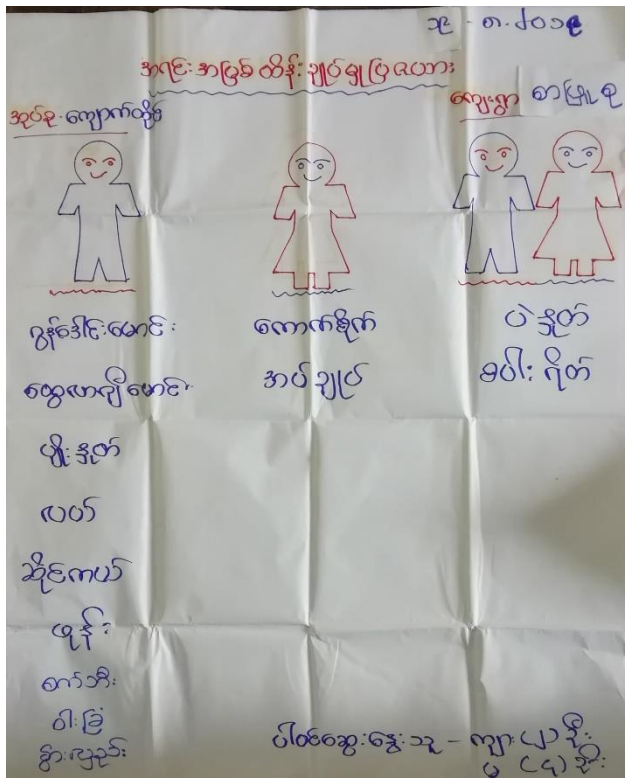 ၁၉ - ၈ - ၂၀၁၉
အရင်းအမြစ် ထိန်းချုပ်မှုပြဇယား
အုပ်စု - ကျောက်တိုင်
ကျေးရွာ စာဖြူစု
ဂွန်ဒေါင်းမောင်း
ထွေလာဂျီမောင်း
ပျိုးနှုတ်
လယ်
ဆိုင်ကယ်
ဖုန်း
စက်ဘီး
ဝါးခြံ
နွားလှည်း
ကောက်စိုက်
အပ်ချုပ်
ပဲနှုတ်
စပါးရိတ်
ပါဝင်ဆွေးနွေးသူ - ကျား (၂) ဦး
မ (၄) ဦး